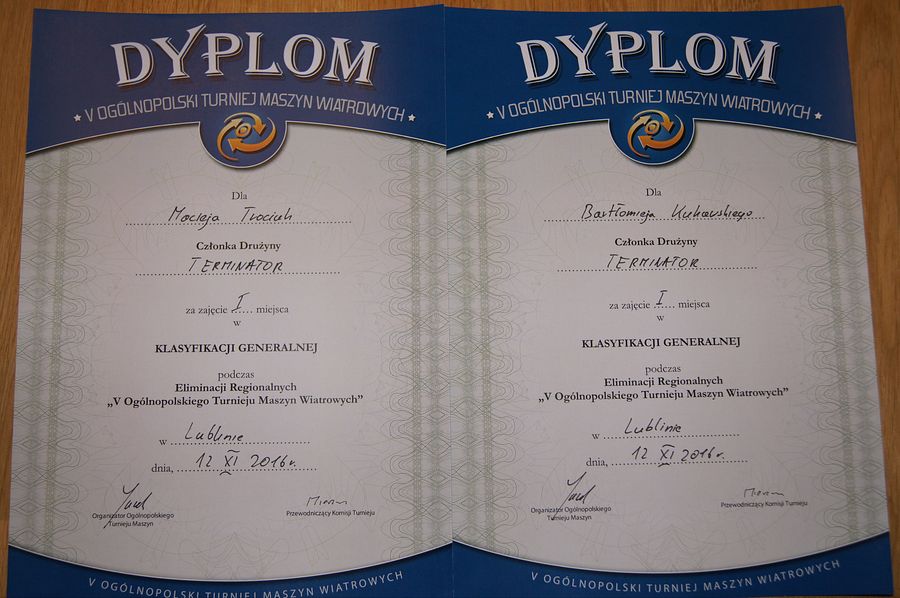 DYPLOM
V OGÓLNOPOLSKI TURNIEJ MASZYN WIATROWYCH
Dla
Macieja
Członka Drużyny
TERMINATOR
za zajęcie I miejsca
w
KLASYFIKACJI GENERALNEJ
podczas
Eliminacji Regionalnych
„V Ogólnopolskiego Turnieju Maszyn Wiatrowych”
w Lublinie
dnia, 12 XI 2016 r.
Organizator Ogólnopolskiego
Turnieju Maszyn
Przewodniczący Komisji Turnieju
V OGÓLNOPOLSKI TURNIEJ MASZYN WIATROWYCH
DYPLOM
V OGÓLNOPOLSKI TURNIEJ MASZYN WIATROWYCH
Dla
Bartłomieja
Członka Drużyny
TERMINATOR
za zajęcie I miejsca
w
KLASYFIKACJI GENERALNEJ
podczas
Eliminacji Regionalnych
„V Ogólnopolskiego Turnieju Maszyn Wiatrowych”
w Lublinie
dnia, 12 XI 2016 r.
Organizator Ogólnopolskiego
Turnieju Maszyn
Przewodniczący Komisji Turnieju
V OGÓLNOPOLSKI TURNIEJ MASZYN WIATROWYCH